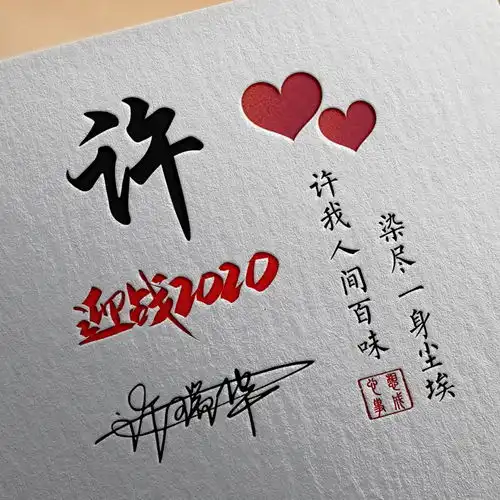 许
迎战2020
许我人间百味
染尽一身尘埃
心想
事成